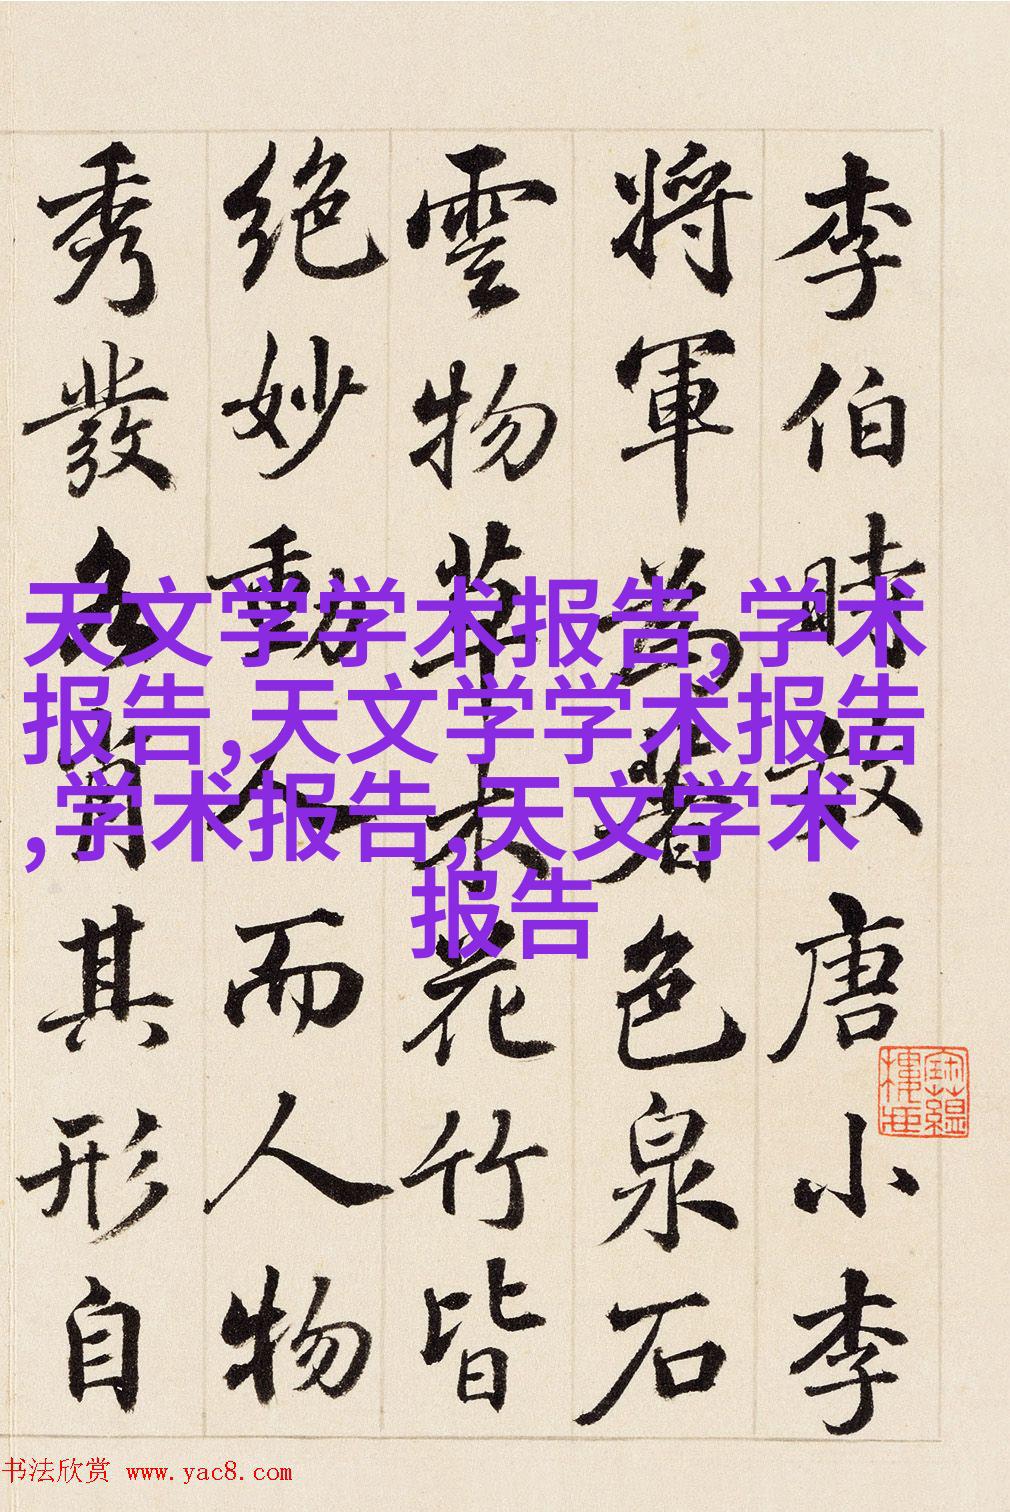 李伯時效唐小李
將軍為著色泉石
雲物草木花竹皆
絕妙動人而人物
秀發各肖其形自
天文学学术报告,学术
报告,天文学学术报告
,学术报告,天文学术
报告
书法欣赏 www.yac8.com